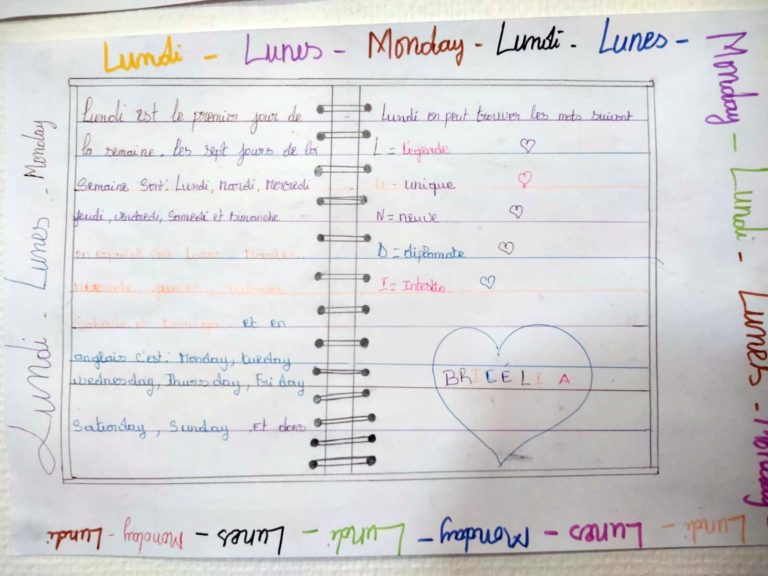 Lundi - Lunes - Monday - Lundi - Lunes -
Monday - Lundi - Lunes - Monday -
Lundi - Lunes - Monday
Lundi est le premier jour de
la semaine. Les sept jours de la
Semaine Sont: Lundi, Mardi, Mercredi
jeudi, vendredi, Samedi et Dimanche
en espagnol Lunes, Martes,
jueves,
Sabado et Domingo. et en
anglais C'est: Monday, tuesday
wednesday, Thursday, Friday
Saturday, Sunday. Et dans
Lundi on peut trouver les mots suivant
L = Légende
U = unique
N = neuve
D = diplomate
I =
BRICÉLIA
Lundi - Monday - Lunes - Lundi - Monday - Lunes - Lundi